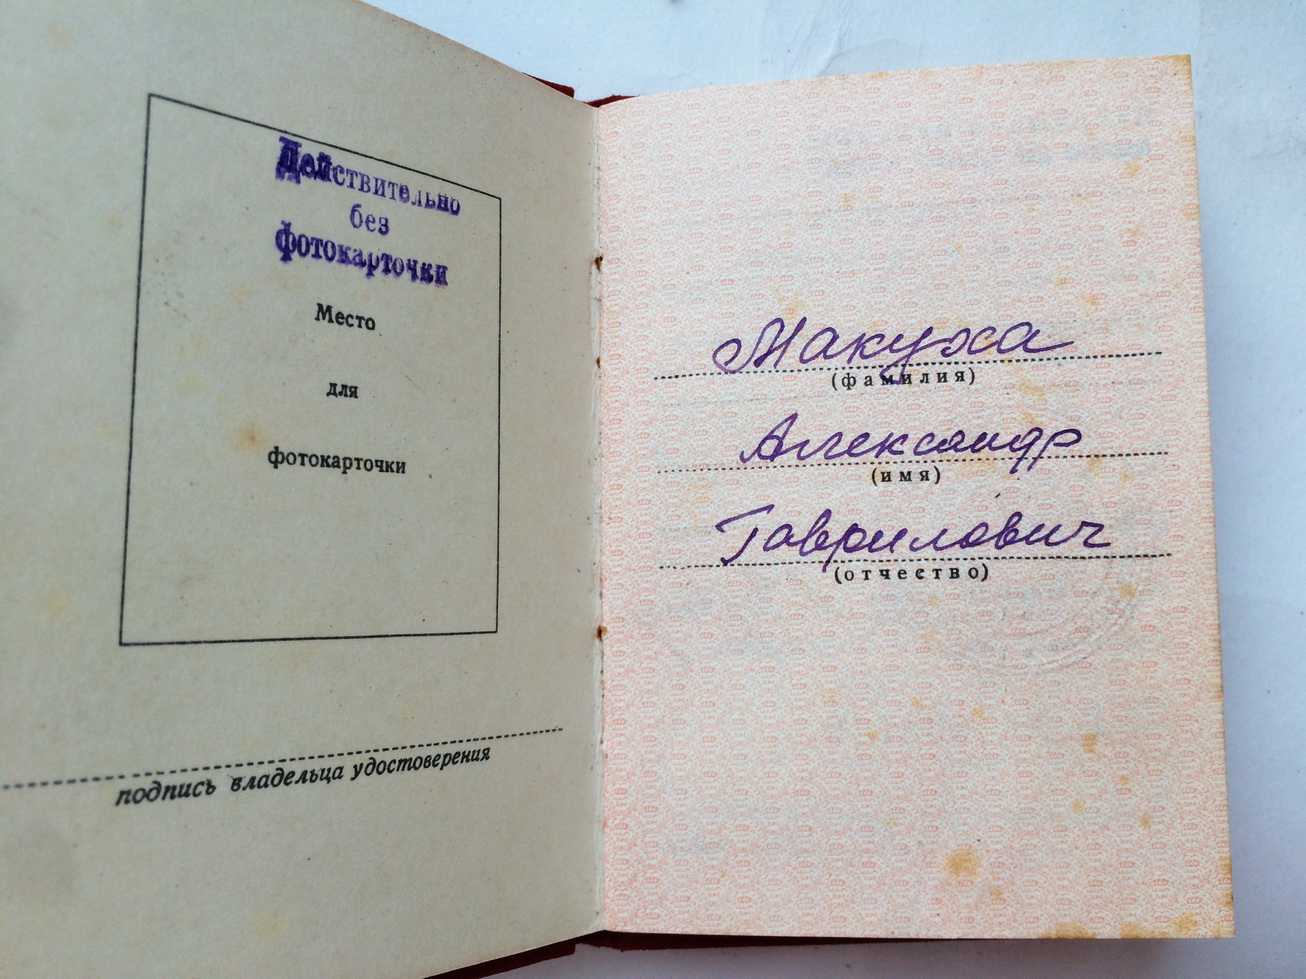 Действительно
без
фотокарточки
Место
для
фотокарточки
подпись владельца удостоверения
Макуха
(фамилия)
Александр
(имя)
Гаврилович
(отчество)